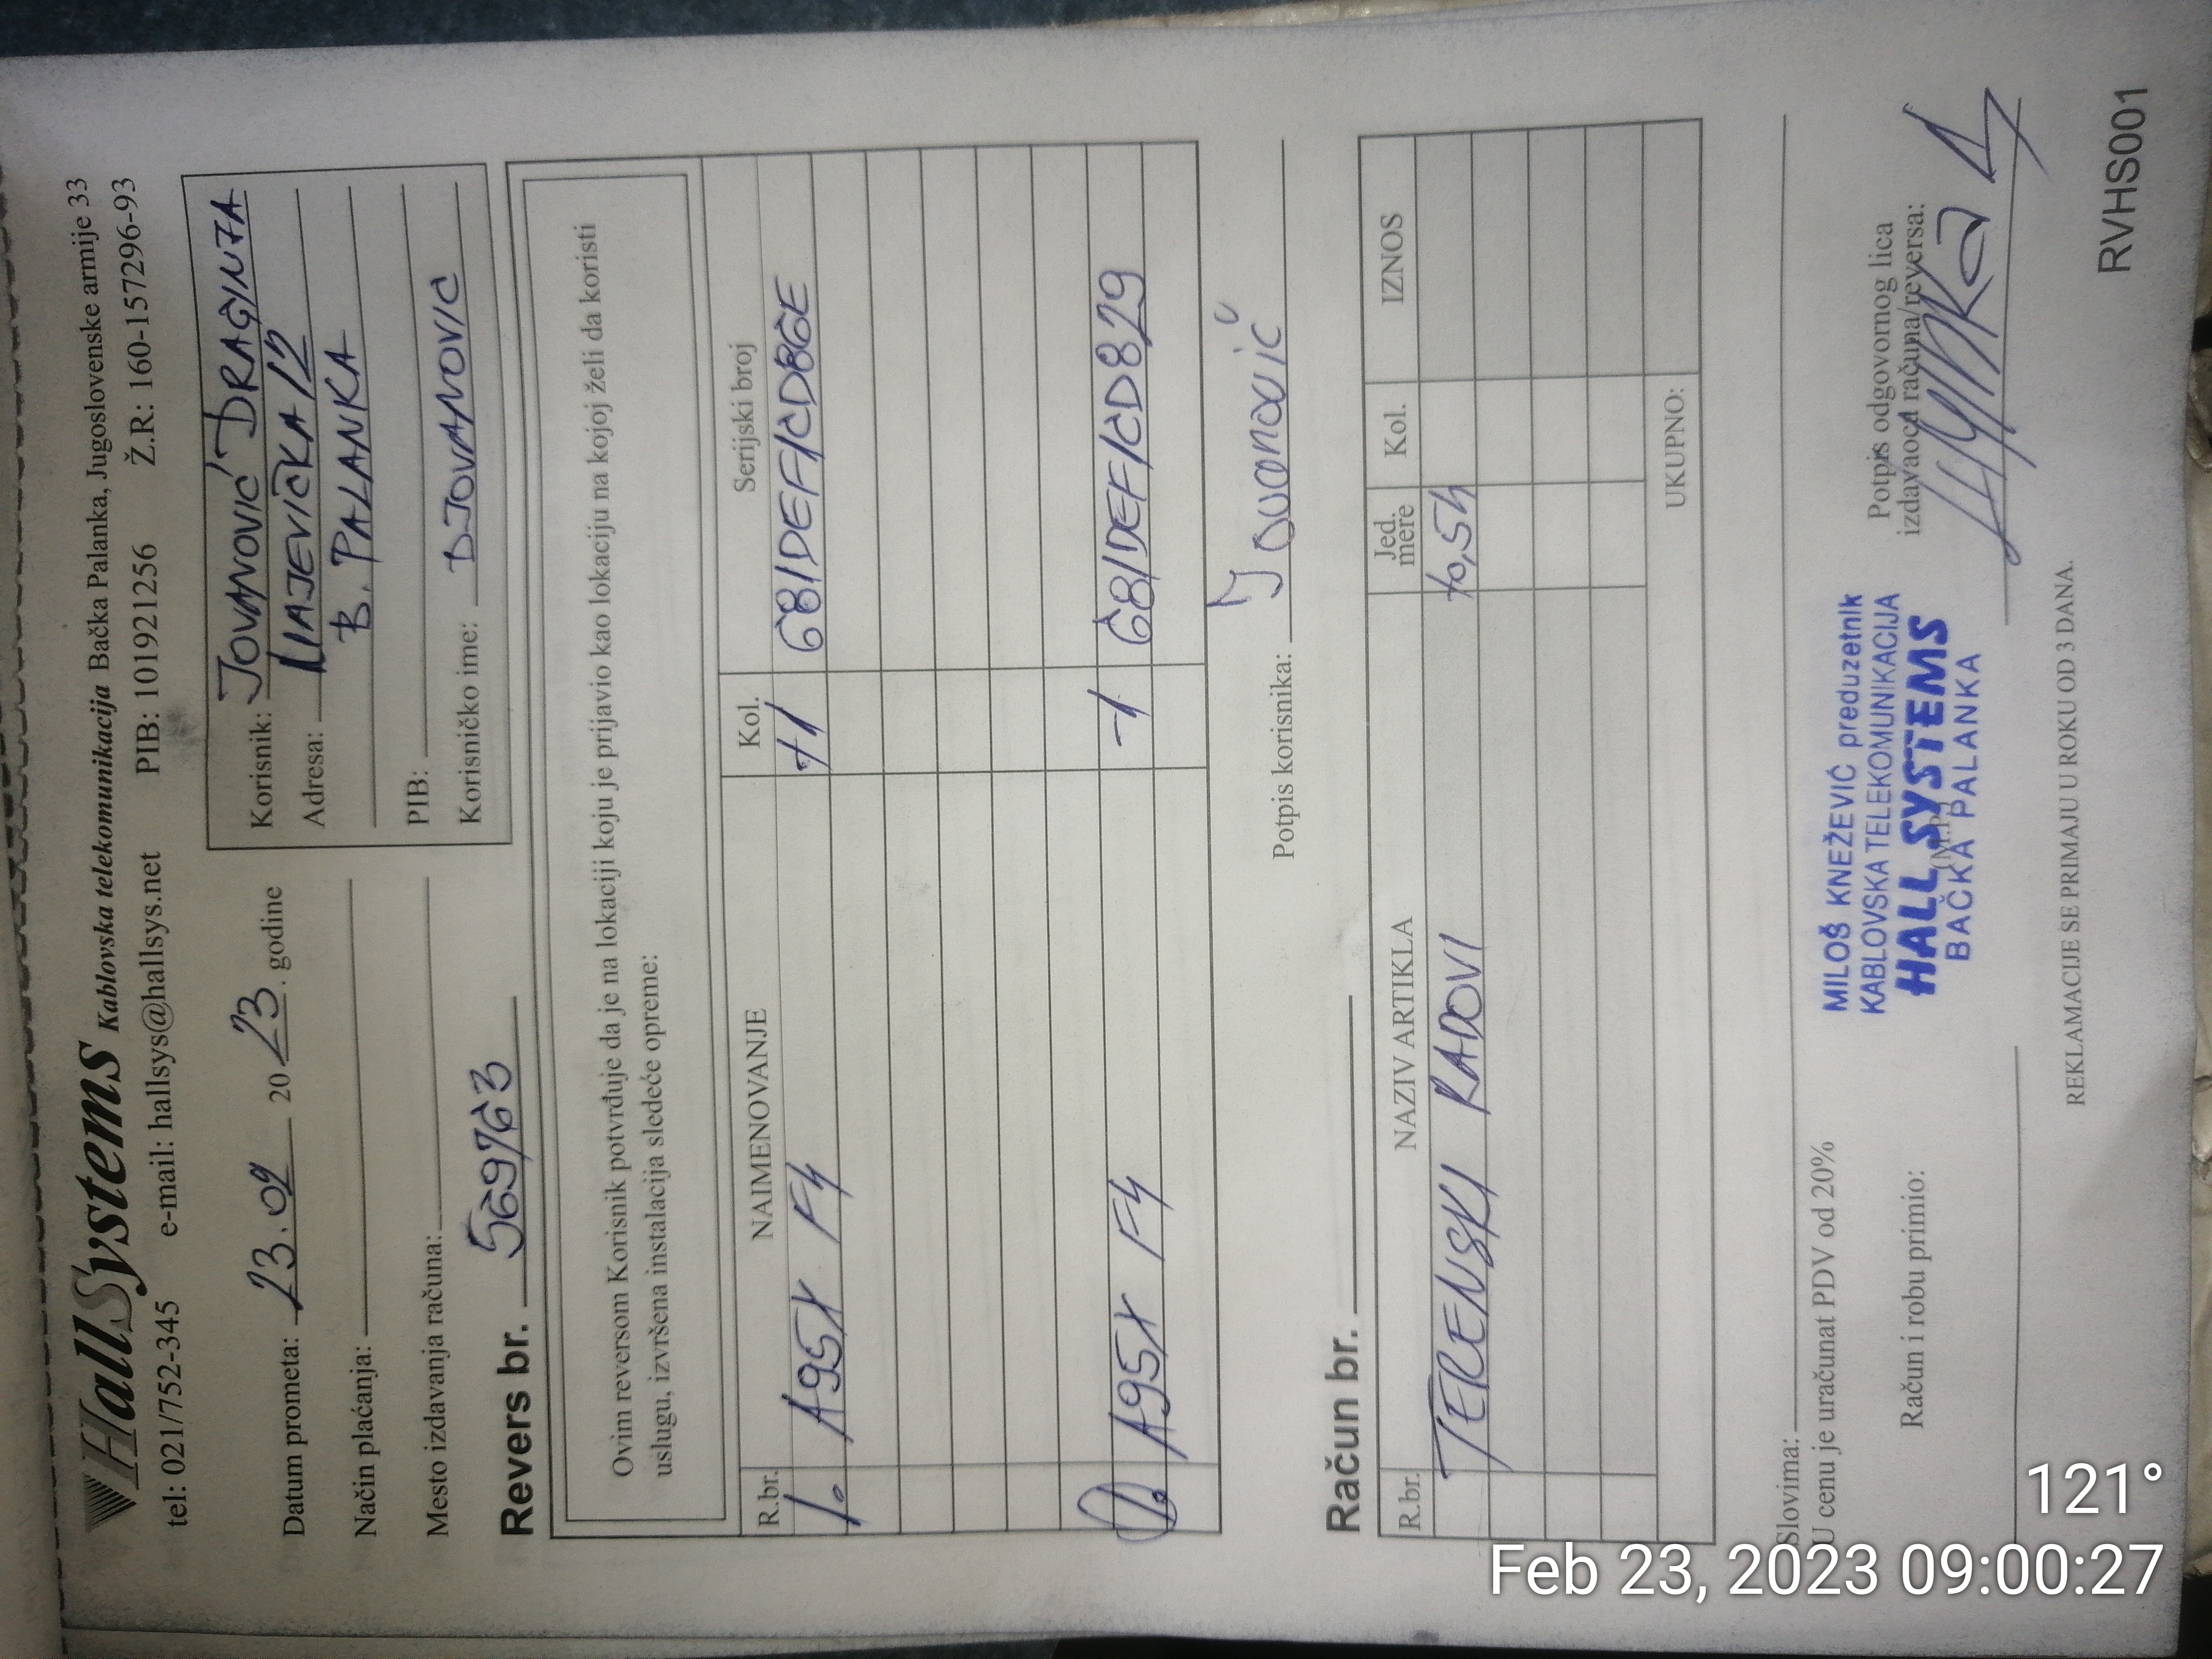 HallSystems Kablovska telekomunikacija Bačka Palanka, Jugoslovenske armije 33
tel: 021/752-345 e-mail: hallsys@hallsys.net PIB: 101921256 Ž.R: 160-157296-93
Datum prometa: 23.02 2023. godine
Način plaćanja:
Mesto izdavanja računa:
Korisnik: JOVANOVIĆ DRAGINJA
Adresa: MAJEVIČKA 12
B. PALANKA
PIB:
Korisničko ime: DJOVANOVIC
Revers br. 569763
Ovim reversom Korisnik potvrđuje da je na lokaciji koju je prijavio kao lokaciju na kojoj želi da koristi
uslugu, izvršena instalacija sledeće opreme:
R.br. NAIMENOVANJE Kol. Serijski broj
1. A95X F4 +1 681DEF1CDBGE
1. A95X F4 -1 681DEF1CD829
Potpis korisnika: Jovanović
Račun br.
R.br. NAZIV ARTIKLA Jed. mere Kol. IZNOS
TERENSKI RADOVI +0,5h
UKUPNO:
Slovima:
U cenu je uračunat PDV od 20%
Račun i robu primio:
MILOŠ KNEŽEVIĆ preduzetnik
KABLOVSKA TELEKOMUNIKACIJA
HALL SYSTEMS
(M.P.)
BAČKA PALANKA
Potpis odgovornog lica
izdavaoca računa/reversa:
REKLAMACIJE SE PRIMAJU U ROKU OD 3 DANA.
RVHS001
121°
Feb 23, 2023 09:00:27